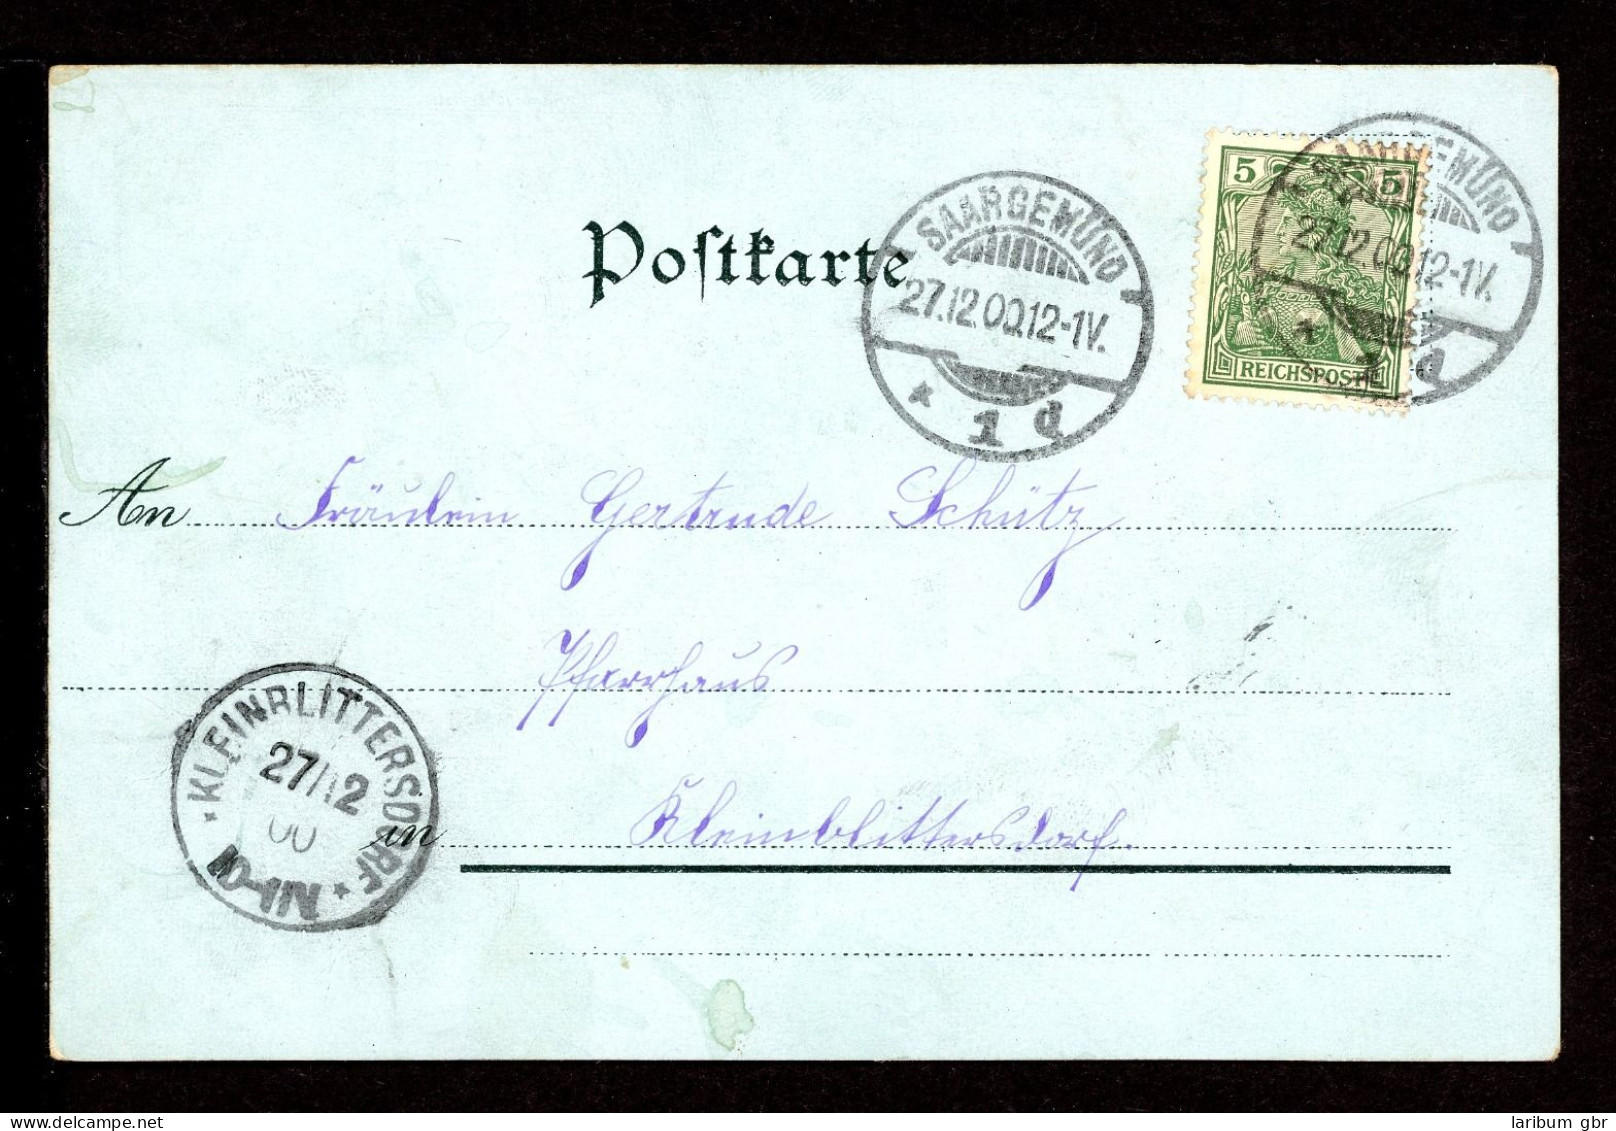 Postkarte
SAARGEMÜND
27.12.00.12-1V.
* 1 d
5 5
REICHSPOST
SAARGEMÜND
27.12.00.12-1V.
* d
An Fräulein Gertrude Schütz
Pfarrhaus
in Kleinblittersdorf.
* KLEINBLITTERSDORF *
27/12
00
laribum gbr